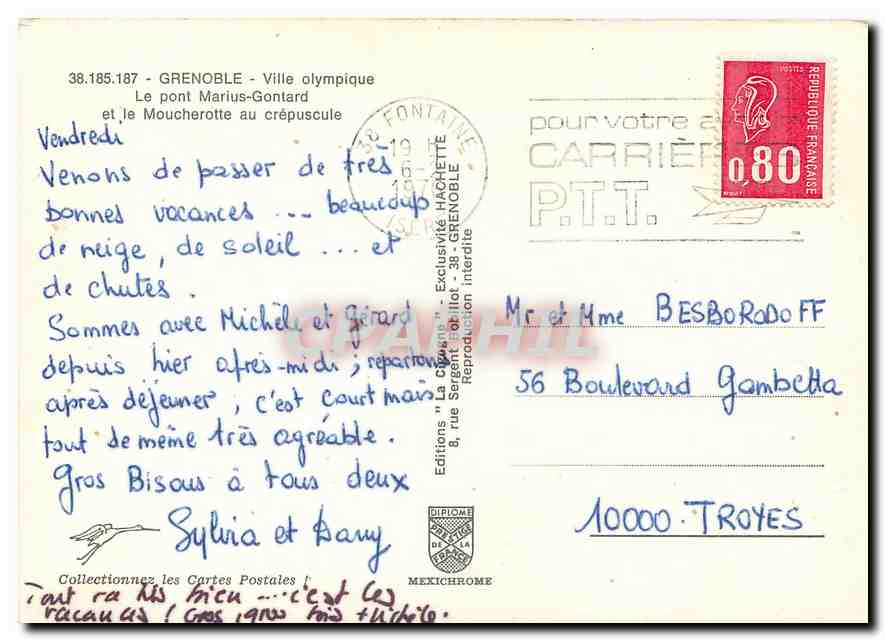 38.185.187 - GRENOBLE - Ville olympique
Le pont Marius-Gontard
et le Moucherotte au crépuscule
Vendredi
Venons de passer de très
bonnes vacances ... beaucoup
de neige, de soleil ... et
de chutes.
Sommes avec Michèle et Gérard
depuis hier après-midi ; repartons
après déjeuner, c'est court mais
tout de même très agréable.
Gros Bisous à tous deux
Sylvia et Dany
Collectionnez les Cartes Postales !
Tout va très bien ... c'est les
vacances ! Gros, gros bis Michèle.
Editions "La Cigogne" - Exclusivité HACHETTE
8, rue Sergent Bobillot - 38 - GRENOBLE
Reproduction interdite
DIPLOME
PRESTIGE
DE LA
FRANCE
MEXICHROME
38 FONTAINE
19 H
6-
197
ISERE
pour votre
CARRIÈRE
P.T.T.
POSTES
REPUBLIQUE FRANÇAISE
0,80
CPARHIL
Mr et Mme BESBORODOFF
56 Boulevard Gambetta
10000. TROYES